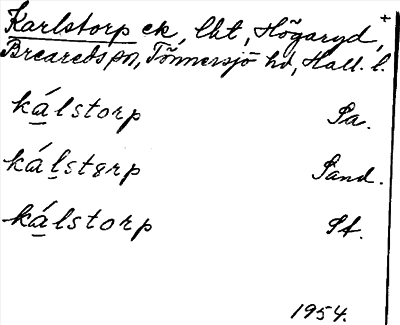 Karlstorp ek, lht, Högaryd, +
Breareds sn, Tönnersjö hd, Hall. l.
kálstorp Sa.
kálstɐrp Sand.
kálstorp St.
1954.